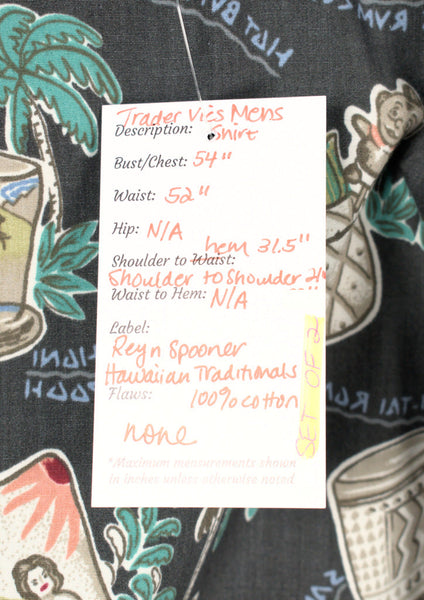 Trader Vic's Mens
Description: Shirt
Bust/Chest: 54"
Waist: 52"
Hip: N/A
hem 31.5"
Shoulder to Waist:
Shoulder to Shoulder
Waist to Hem: N/A
Label:
Reyn Spooner
Hawaiian Traditionals
Flaws: 100% cotton
none
SET OF 2
*Maximum measurements shown
in inches unless otherwise noted.